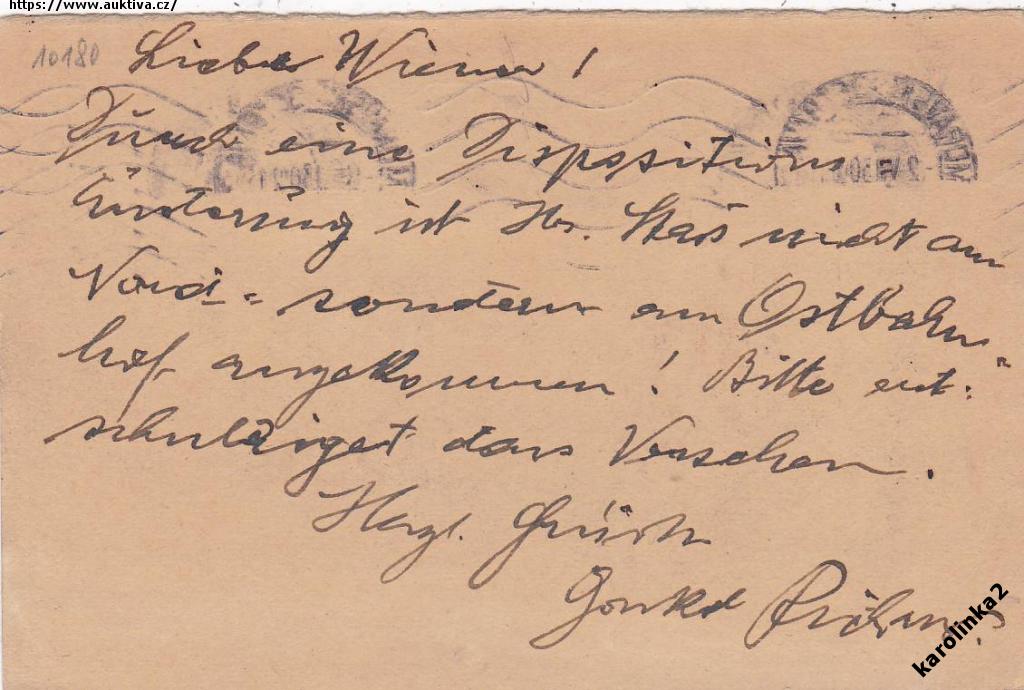 https://www.auktiva.cz/
10180 Lieber Wiener!
Durch eine Dispositions
Änderung ist Hr. nicht am
Nord- sondern am Ostbahn-
hof angekommen! Bitte ent-
schuldiget das Versehen.
Herzl. Grüße
karolinka2